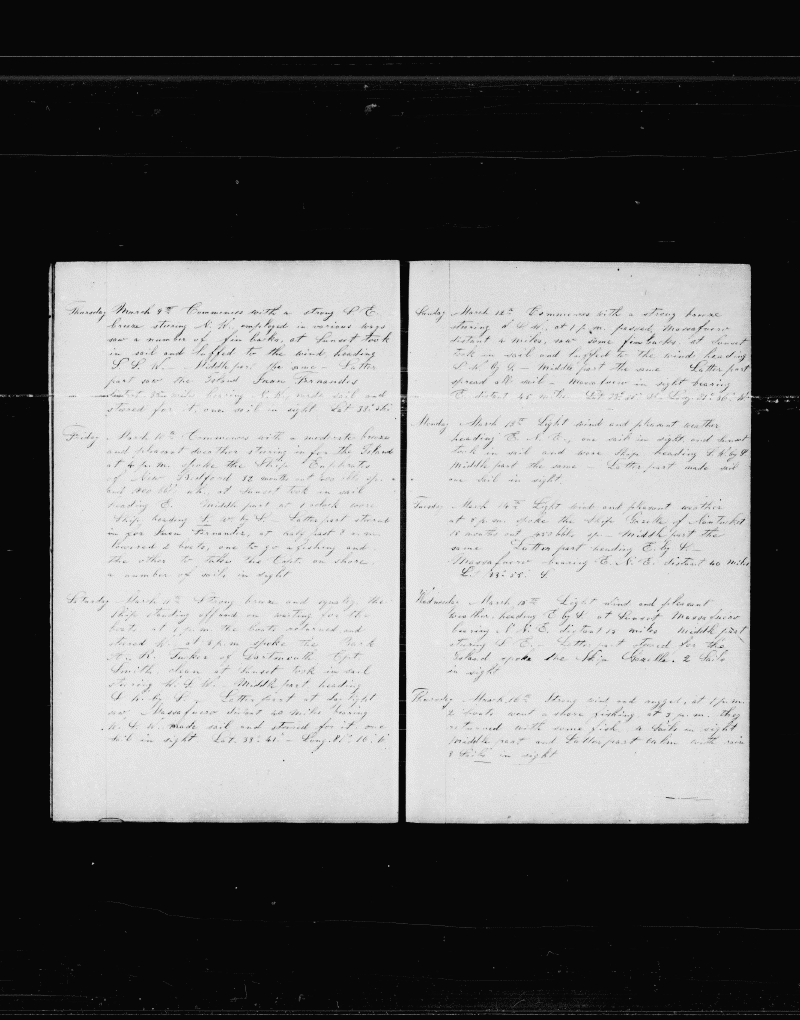 Thursday March 9th Commences with a strong S. E.
breeze stering N. W. employed in various ways
saw a number of fin backs, at Sunset took
in sail and luffed to the wind heading
S. S. W. — Middle part the same — Latter
part saw the Island Juan Fernandes
distant 35 miles bearing N. N. made sail and
steered for it, one sail in sight Lat 33°
Friday March 10th Commences with a moderate breeze
and pleasant weather stering in for the Island
at 4 p.m. spoke the Ship Euphrates
of New Bedford 32 months out 200 bbls sp.
and wh. at sunset took in sail
heading E. Middle part at 1 oclock wore
Ship, heading S. W. by S. Latter part steered
in for Juan Fernander, at half past 8 a.m.
lowered 2 boats, one to go a fishing and
the other to take the Capt. on shore
a number of sails in sight
Saturday March 11th Strong breeze and squally, the
ship standing off and on waiting for the
boats at 1 p.m. the boats returned and
steered W. at 3 p.m. spoke the Bark
A. R. Tucker of Dartmouth Capt
Smith, clean at Sunset took in sail
stering W. S. W. Middle part heading
S. W. by S. Latter part at daylight
saw Massafuero distant 40 miles bearing
W. S. W. made sail and steered for it one
sail in sight Lat. 33° 41' — Long. 80° 16' W
Sunday March 12th Commences with a strong breeze
stering S. W. at 1 p.m. passed Massafuero
distant 2 miles, saw some finbacks, at Sunset
took in sail and luffed to the wind heading
S. W. by S — Middle part the same Latter part
spread all sail — Massafuero in sight bearing
E distant 45 miles — Lat 33° S — Long 81° 36' W
Monday March 13th Light wind and pleasant weather
heading E. N. E., one sail in sight and sunset
took in sail and wore ship heading S. W. by S
Middle part the same — Latter part made sail
one sail in sight
Tuesday March 14th Light wind and pleasant weather
at 5 p.m. spoke the ship Gazelle of Nantucket
18 months out bbls sp — Middle part the
same Latter part heading E. by S. —
Massafuero bearing E. N. E. distant 40 miles
Lat 33° 55' S
Wednesday March 15th Light wind and pleasant
weather heading E by S. at Sunset Massafuero
bearing N. N. E. distant 12 miles Middle part
stering S. E. — Latter part steered for the
Island spoke the Ship Gazelle. 2 Sails
in sight
Thursday March 16th Strong wind and rugged, at 1 p.m.
2 boats went a shore fishing at 3 p.m. they
returned with some fish 4 Sails in sight
Middle part and Latter part calm with rain
3 Sails in sight